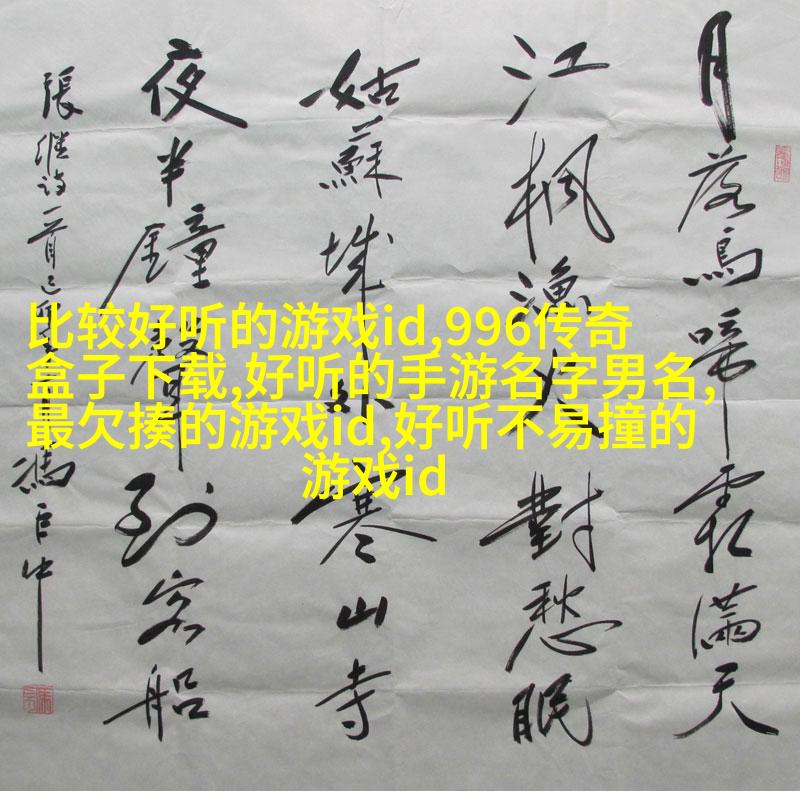 月落烏啼霜滿天
江楓漁火對愁眠
姑蘇城外寒山寺
夜半鐘聲到客船
張繼詩一首
比较好听的游戏id,996传奇
盒子下载,好听的手游名字男名,
最欠揍的游戏id,好听不易撞的
游戏id